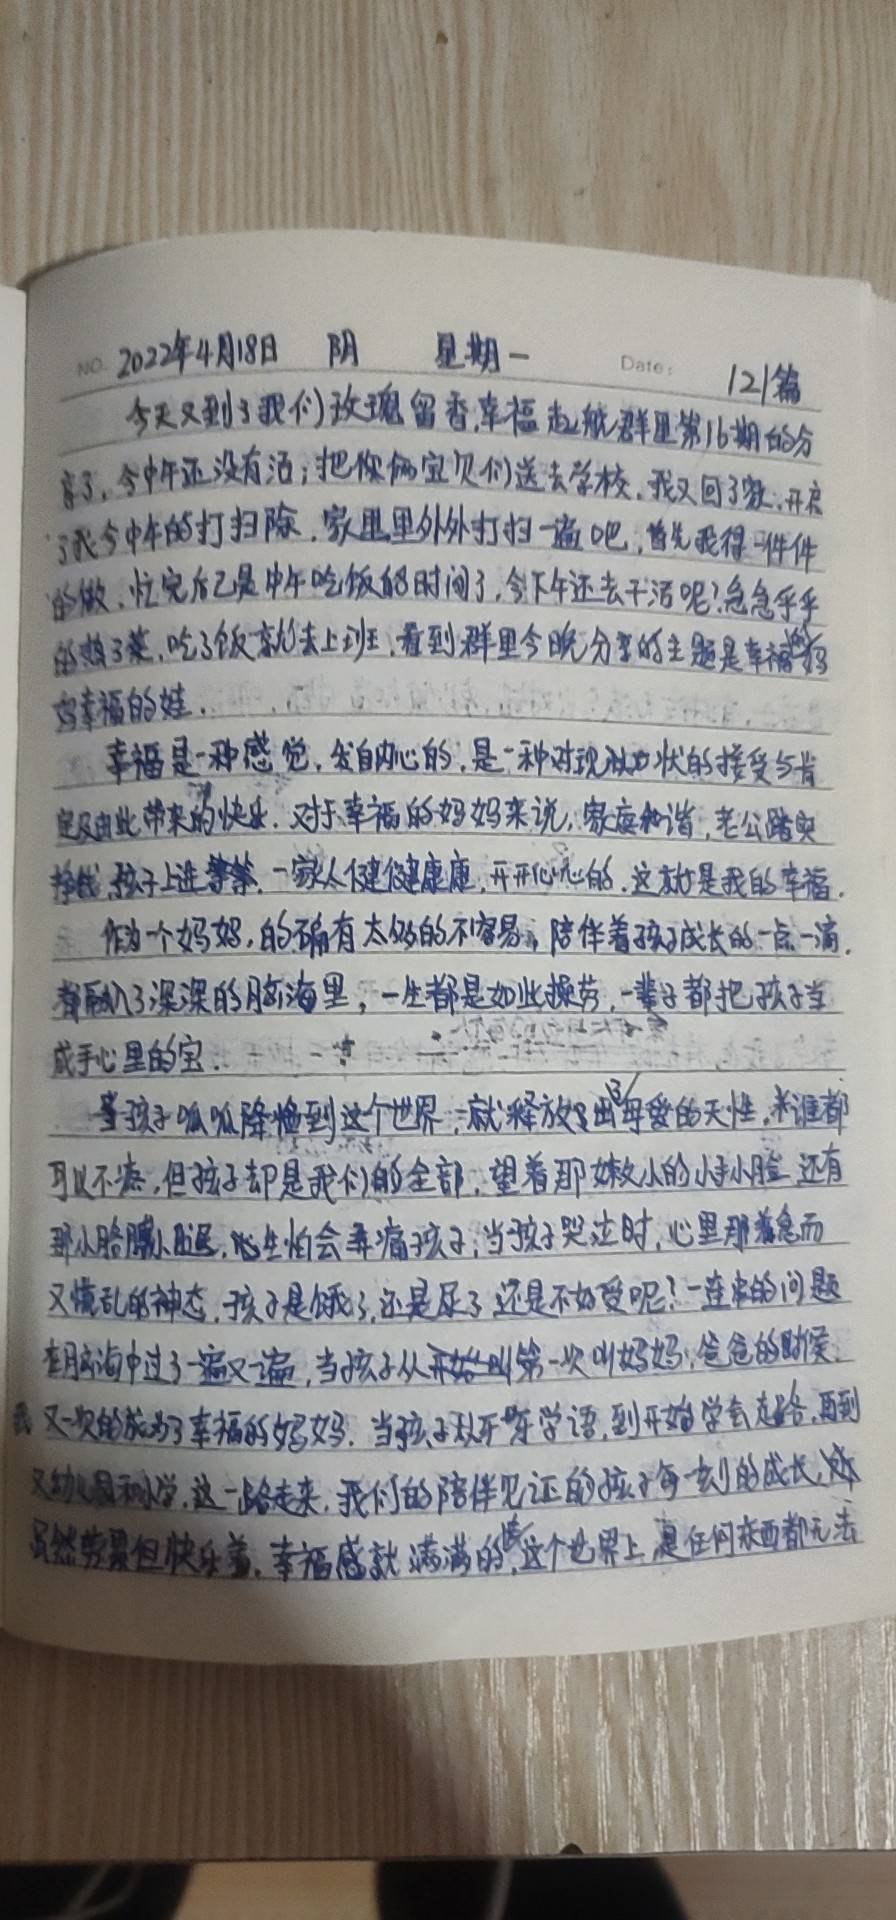 NO. 2022年4月18日 阴 星期一 Date: 121篇
今天又到了我们玫瑰留香,幸福起航群里第16期的分
享了,今中午还没有活;把你俩宝贝们送去学校,我又回了家,开启
了我今中午的打扫除,家里里外外打扫一遍吧,首先我得一件件
的做,忙完后已是中午吃饭的时间了,今下午还去干活呢?急急乎乎
的热了菜,吃了饭就去上班,看到群里今晚分享的主题是幸福的妈
妈幸福的娃.
幸福是一种感觉,发自内心的,是一种对现状的接受与肯
定及由此带来的快乐.对于幸福的妈妈来说,家庭和谐,老公踏实
挣钱,孩子上进等等,一家人健健康康,开开心心的,这就是我的幸福.
作为一个妈妈,的确有太多的不容易,陪伴着孩子成长的一点一滴,
都融入了深深的脑海里,一生都是如此操劳,一辈子都把孩子当
成手心里的宝.
当孩子呱呱降临到这个世界,就释放出了母爱的天性,谁都
可以不疼,但孩子却是我们的全部,望着那嫩小的小手小脸,还有
那小胳膊小腿,心生怕会弄痛孩子,当孩子哭泣时,心里那着急而
又慌乱的神态,孩子是饿了,还是尿了,还是不好受呢?一连串的问题
在脑海中过了一遍又一遍,当孩子从第一次叫妈妈,爸爸的时候,
我又一次的成为了幸福的妈妈.当孩子从开牙学语,到开始学会走路,再到
又幼儿园和小学,这一路走来,我们的陪伴见证的孩子每一刻的成长,
虽然劳累但快乐着,幸福感就满满的,这个世界上,是任何东西都无法